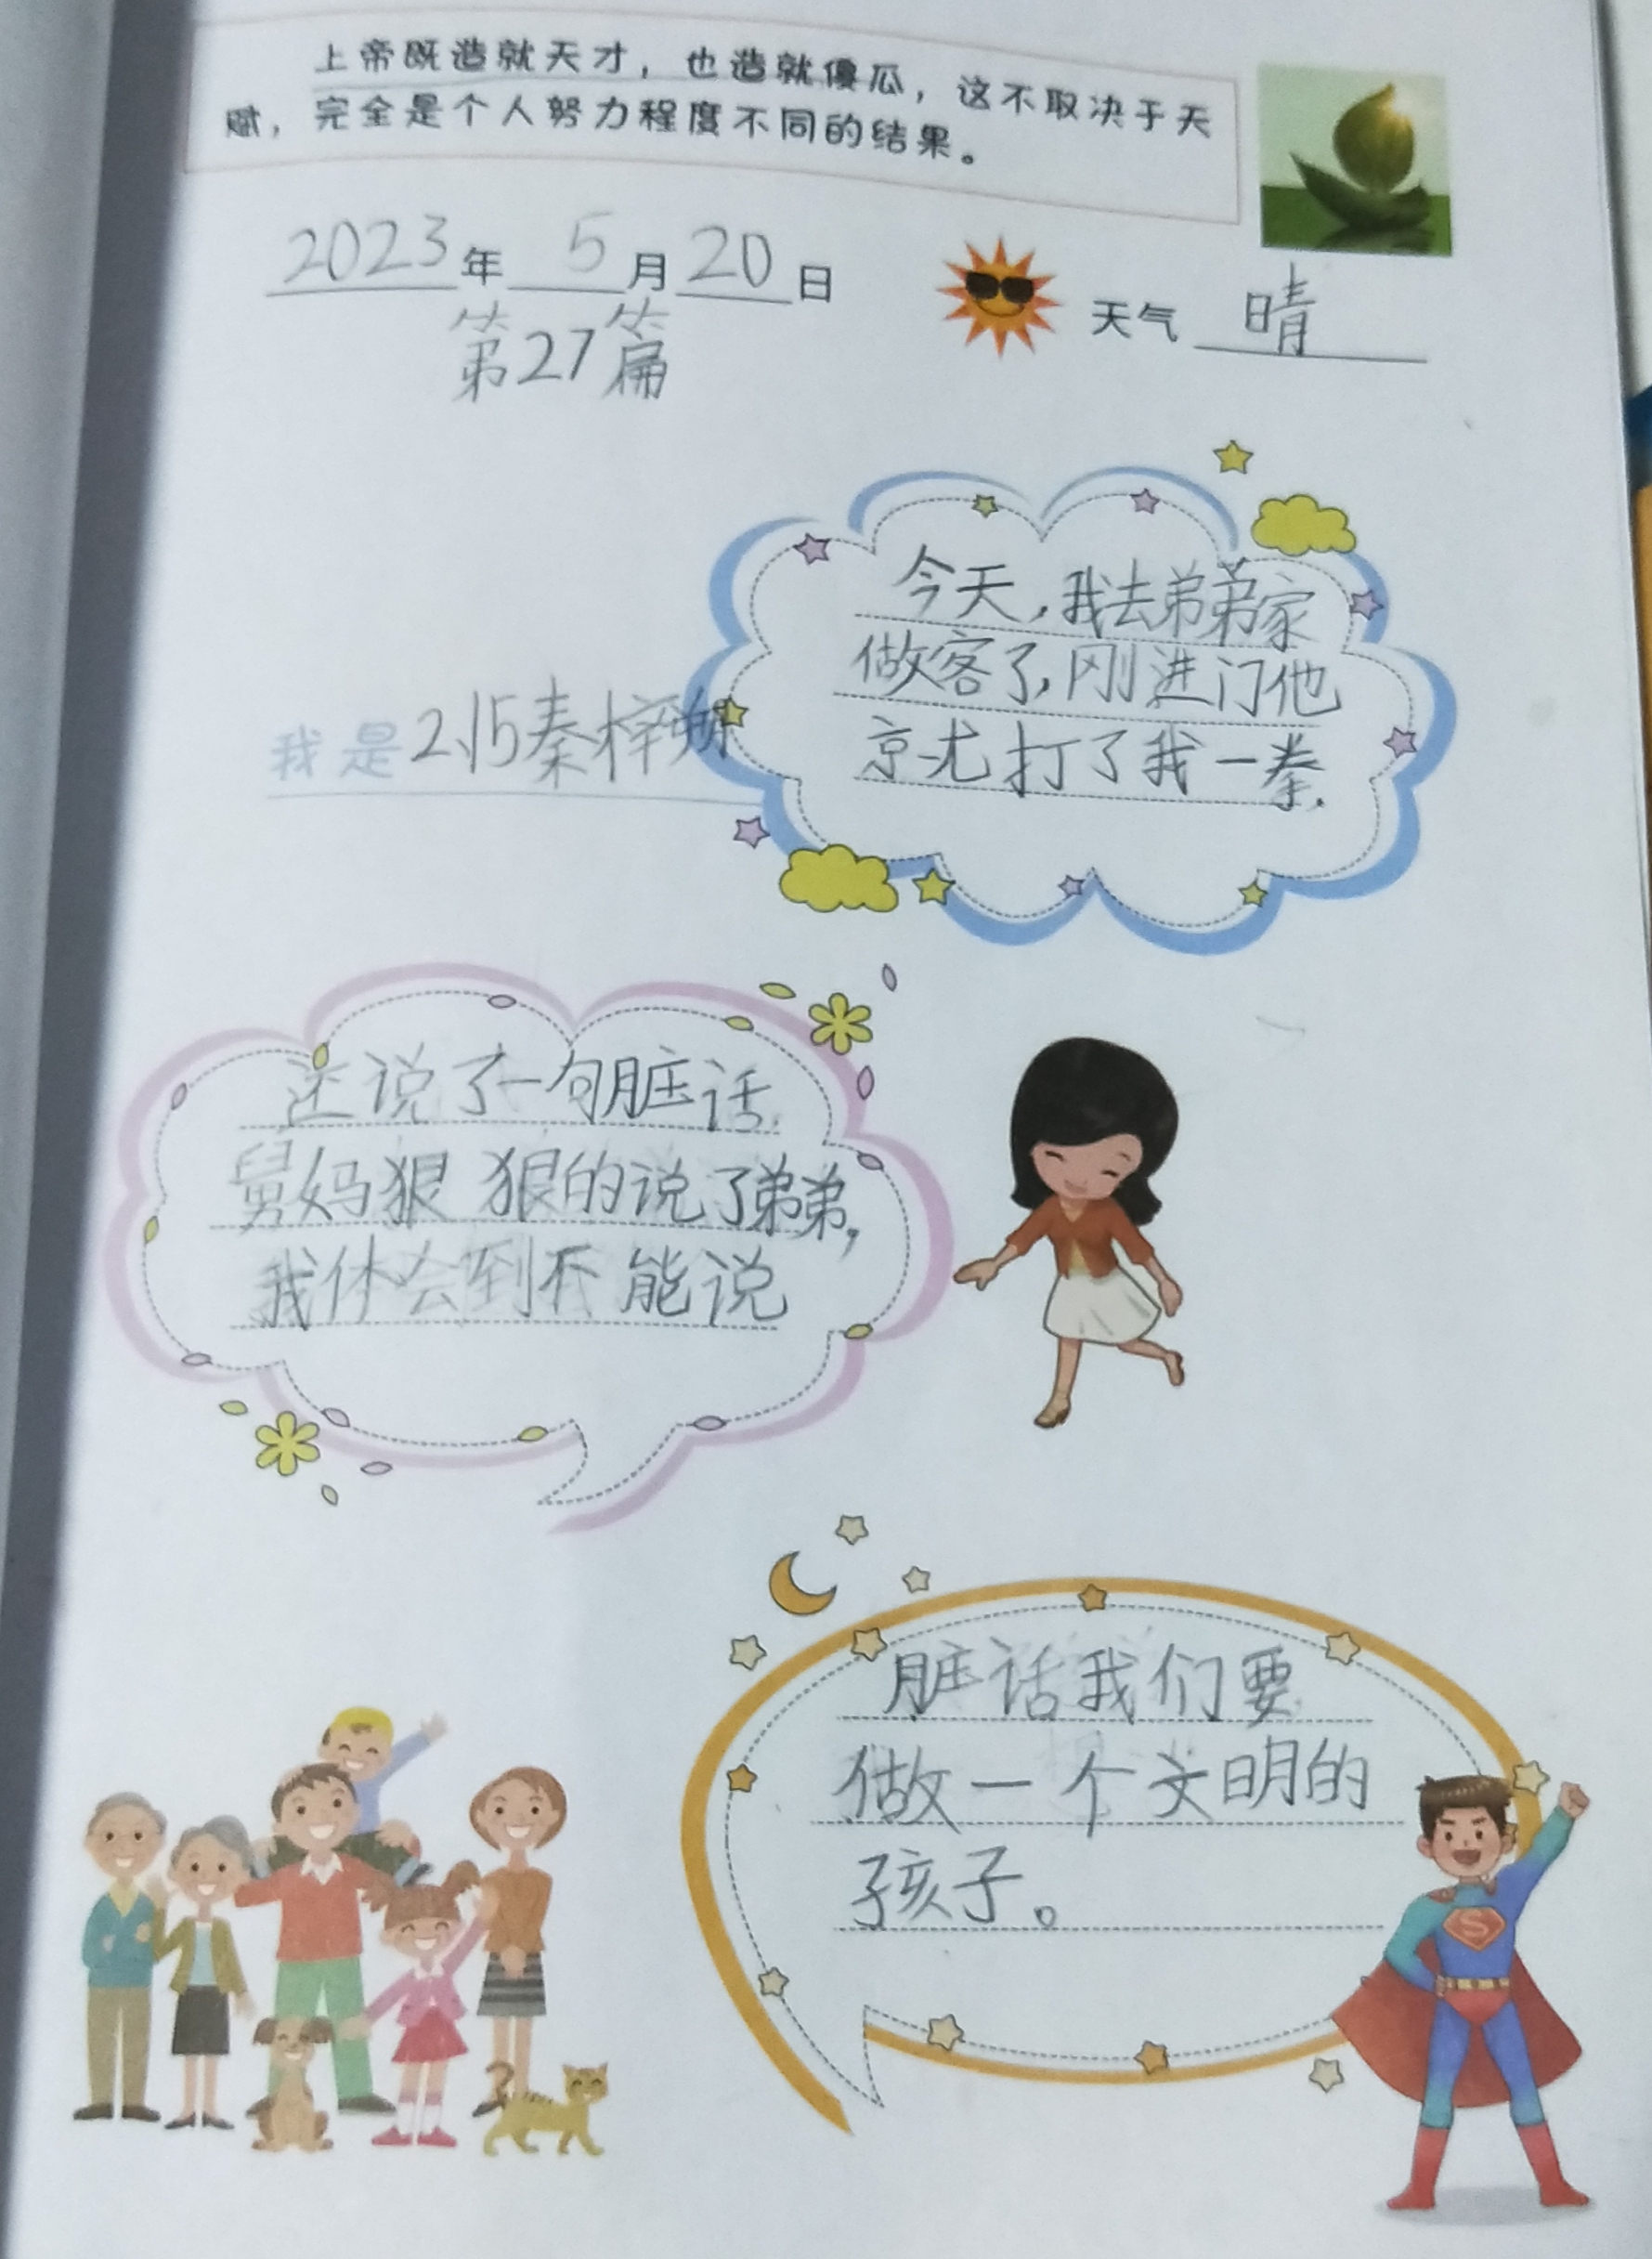 上帝既造就天才，也造就傻瓜，这不取决于天
赋，完全是个人努力程度不同的结果。
2023年 5月20日
天气 晴
第27篇
今天,我去弟弟家
做客了,刚进门他
京尤打了我一拳,
我是2.15秦梓
还说了一句脏话,
舅妈狠狠的说了弟弟,
我体会到不能说
脏话我们要
做一个文明的
孩子。
S